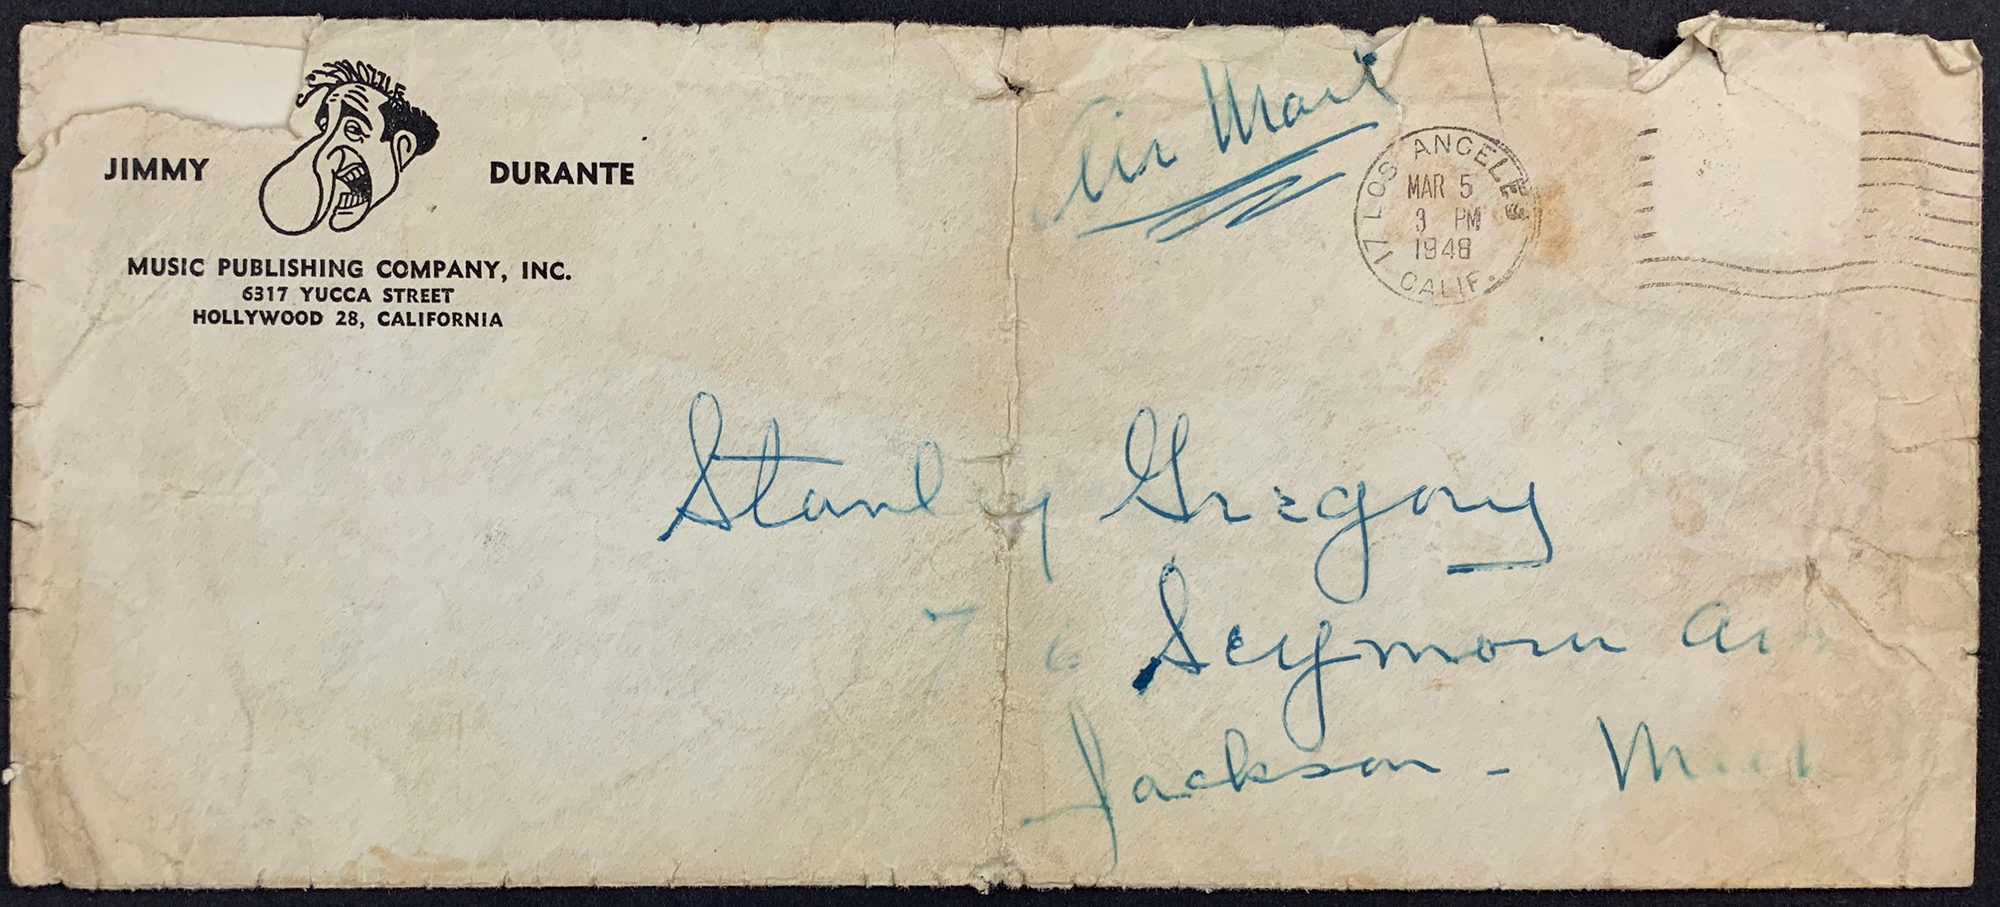 SCHNOZZLE
JIMMY DURANTE
MUSIC PUBLISHING COMPANY, INC.
6317 YUCCA STREET
HOLLYWOOD 28, CALIFORNIA
Air Mail
LOS ANGELES 17
MAR 5
3 PM
1948
CALIF.
Stanley Gregory
Seymour
Jackson - Mich